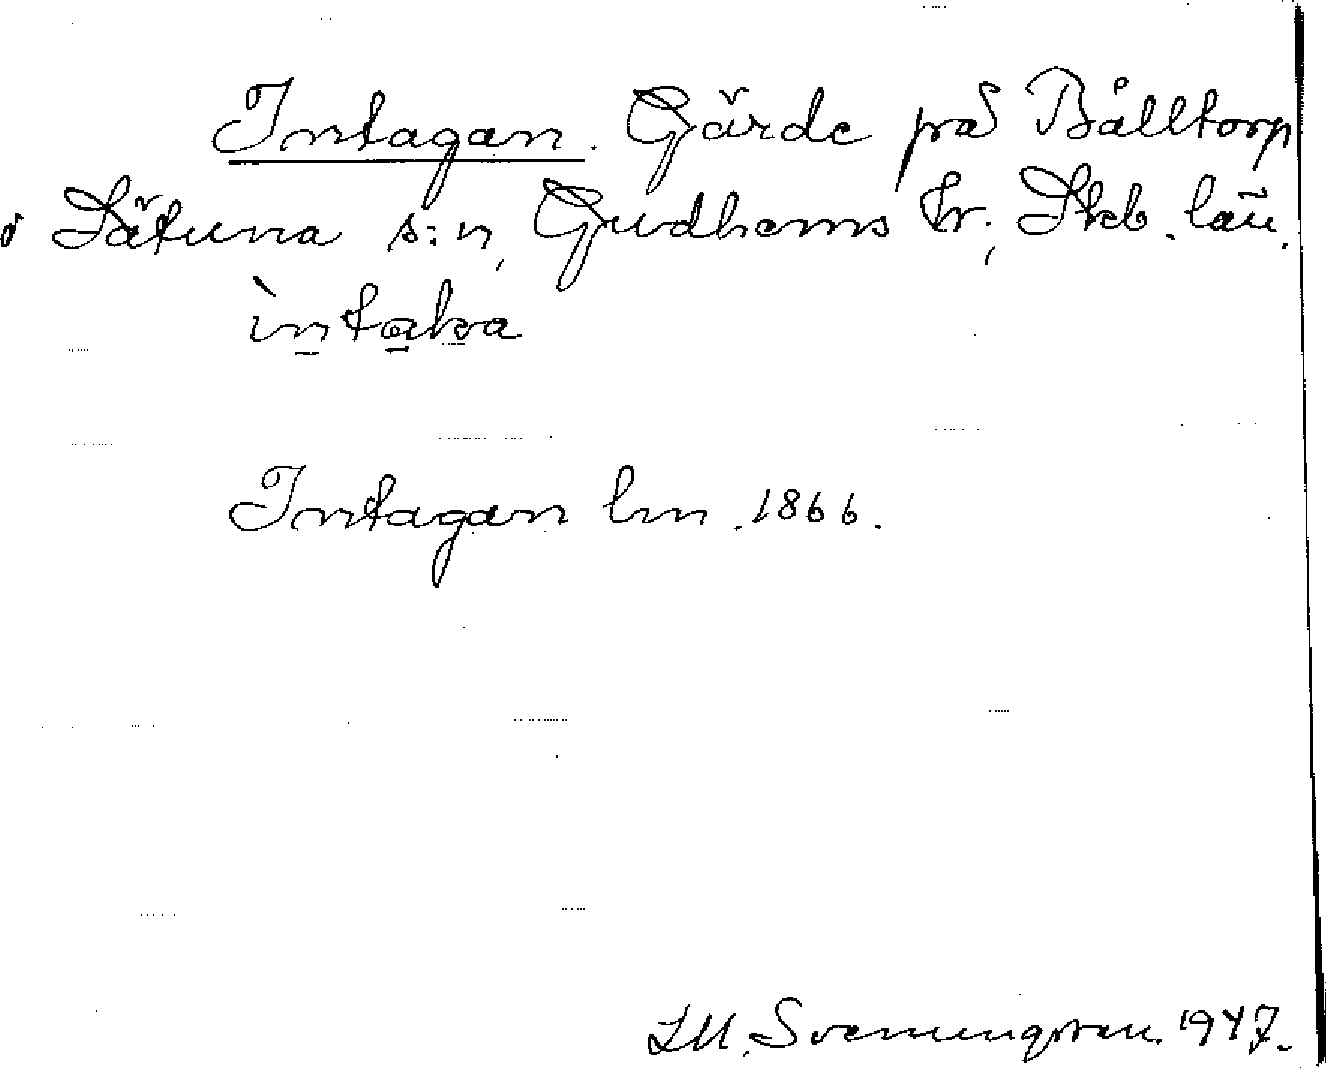 Intagan. Gärde på Bålltorp
i Sätuna s:n, Gudhems hr; Skb. län.
ìntaka
Intagan lm. 1866.
Svenungsson. 1947.